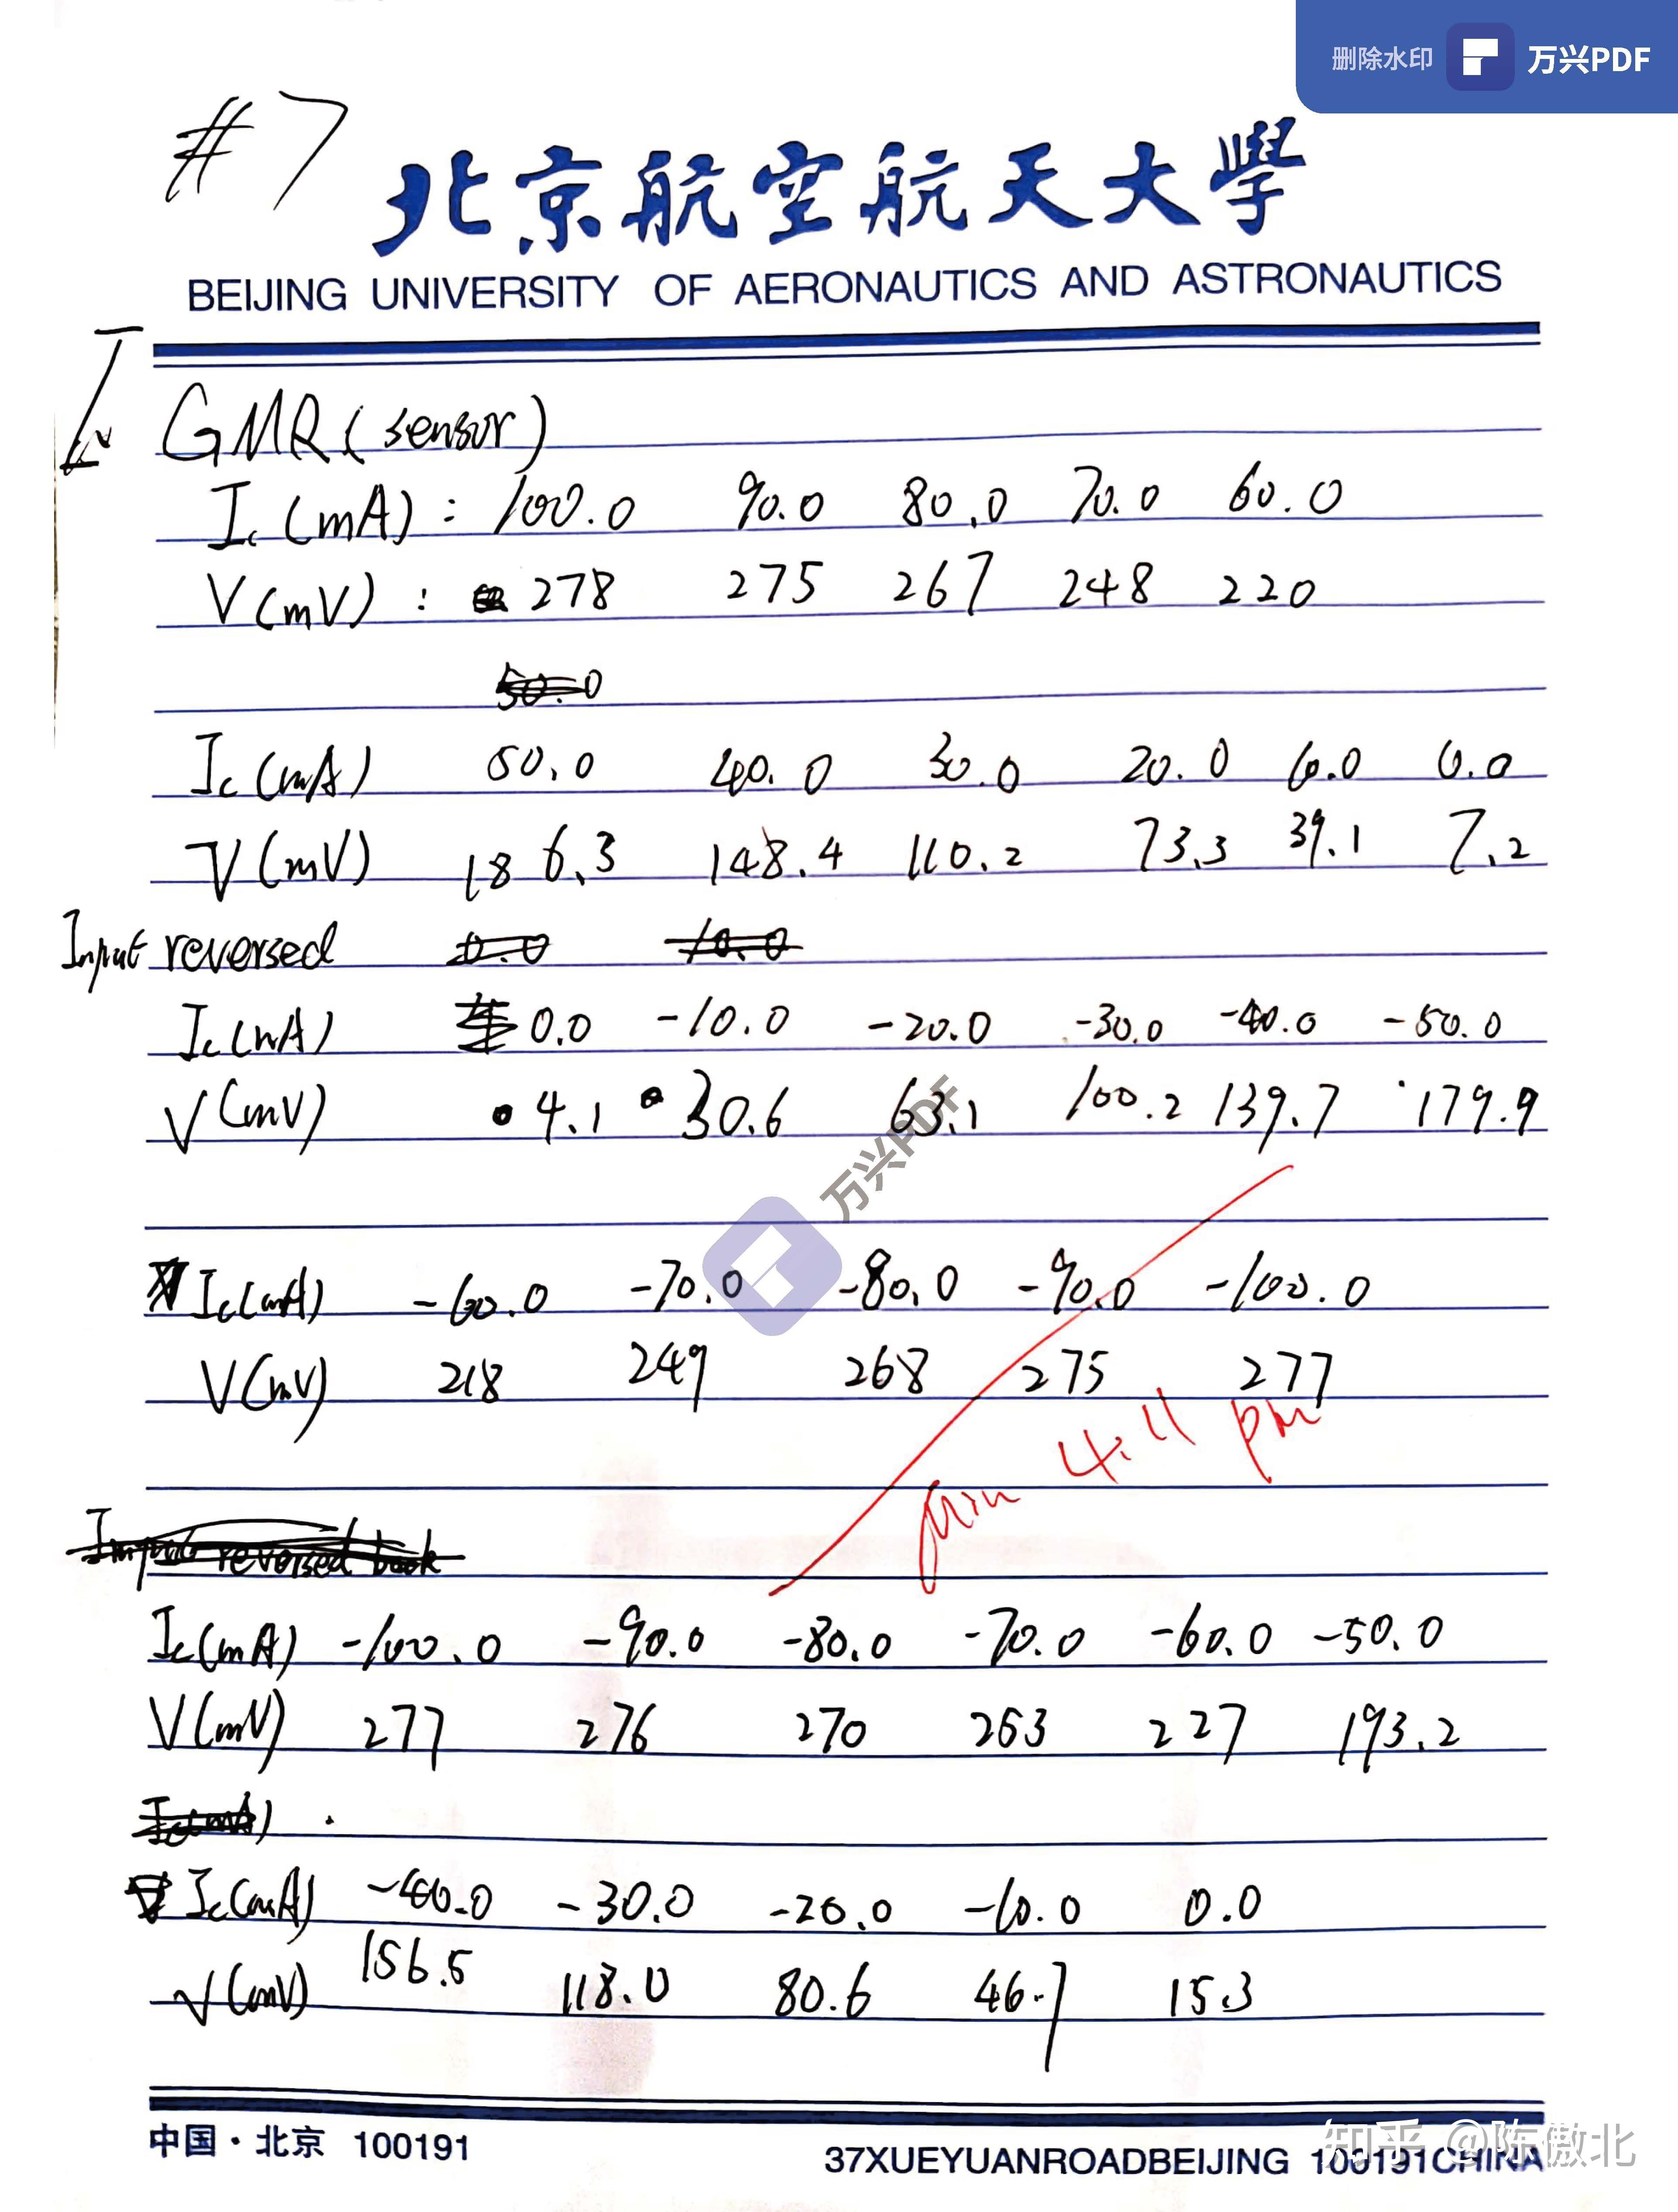 删除水印 万兴PDF
#7
北京航空航天大學
BEIJING UNIVERSITY OF AERONAUTICS AND ASTRONAUTICS
I
GMR (sensor)
Ic (mA) : 100.0 90.0 80.0 70.0 60.0
V (mV) : 278 275 267 248 220
50.0
Ic (mA) 50.0 40.0 30.0 20.0 10.0 0.0
V (mV) 186.3 148.4 110.2 73.3 39.1 7.2
Input reversed 0.0 10.0
Ic (mA) 0.0 -10.0 -20.0 -30.0 -40.0 -50.0
V (mV) 4.1 30.6 63.1 100.2 139.7 179.9
万兴PDF
Ic (mA) -60.0 -70.0 -80.0 -90.0 -100.0
V (mV) 218 249 268 275 277
4.11 pm
Input reversed back
Ic (mA) -100.0 -90.0 -80.0 -70.0 -60.0 -50.0
V (mV) 277 276 270 253 227 193.2
Ic (mA)
Ic (mA) -40.0 -30.0 -20.0 -10.0 0.0
V (mV) 156.5 118.0 80.6 46.7 15.3
中国·北京 100191
37XUEYUANROADBEIJING 100191CHINA
知乎 @陈傲北